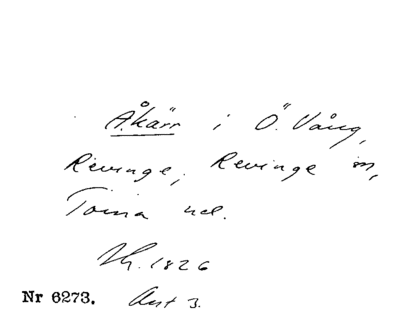 Åkärr i Ö. Vång,
Revinge, Revinge sn,
Torna hd.
1826
Nr 6273. Akt 3.